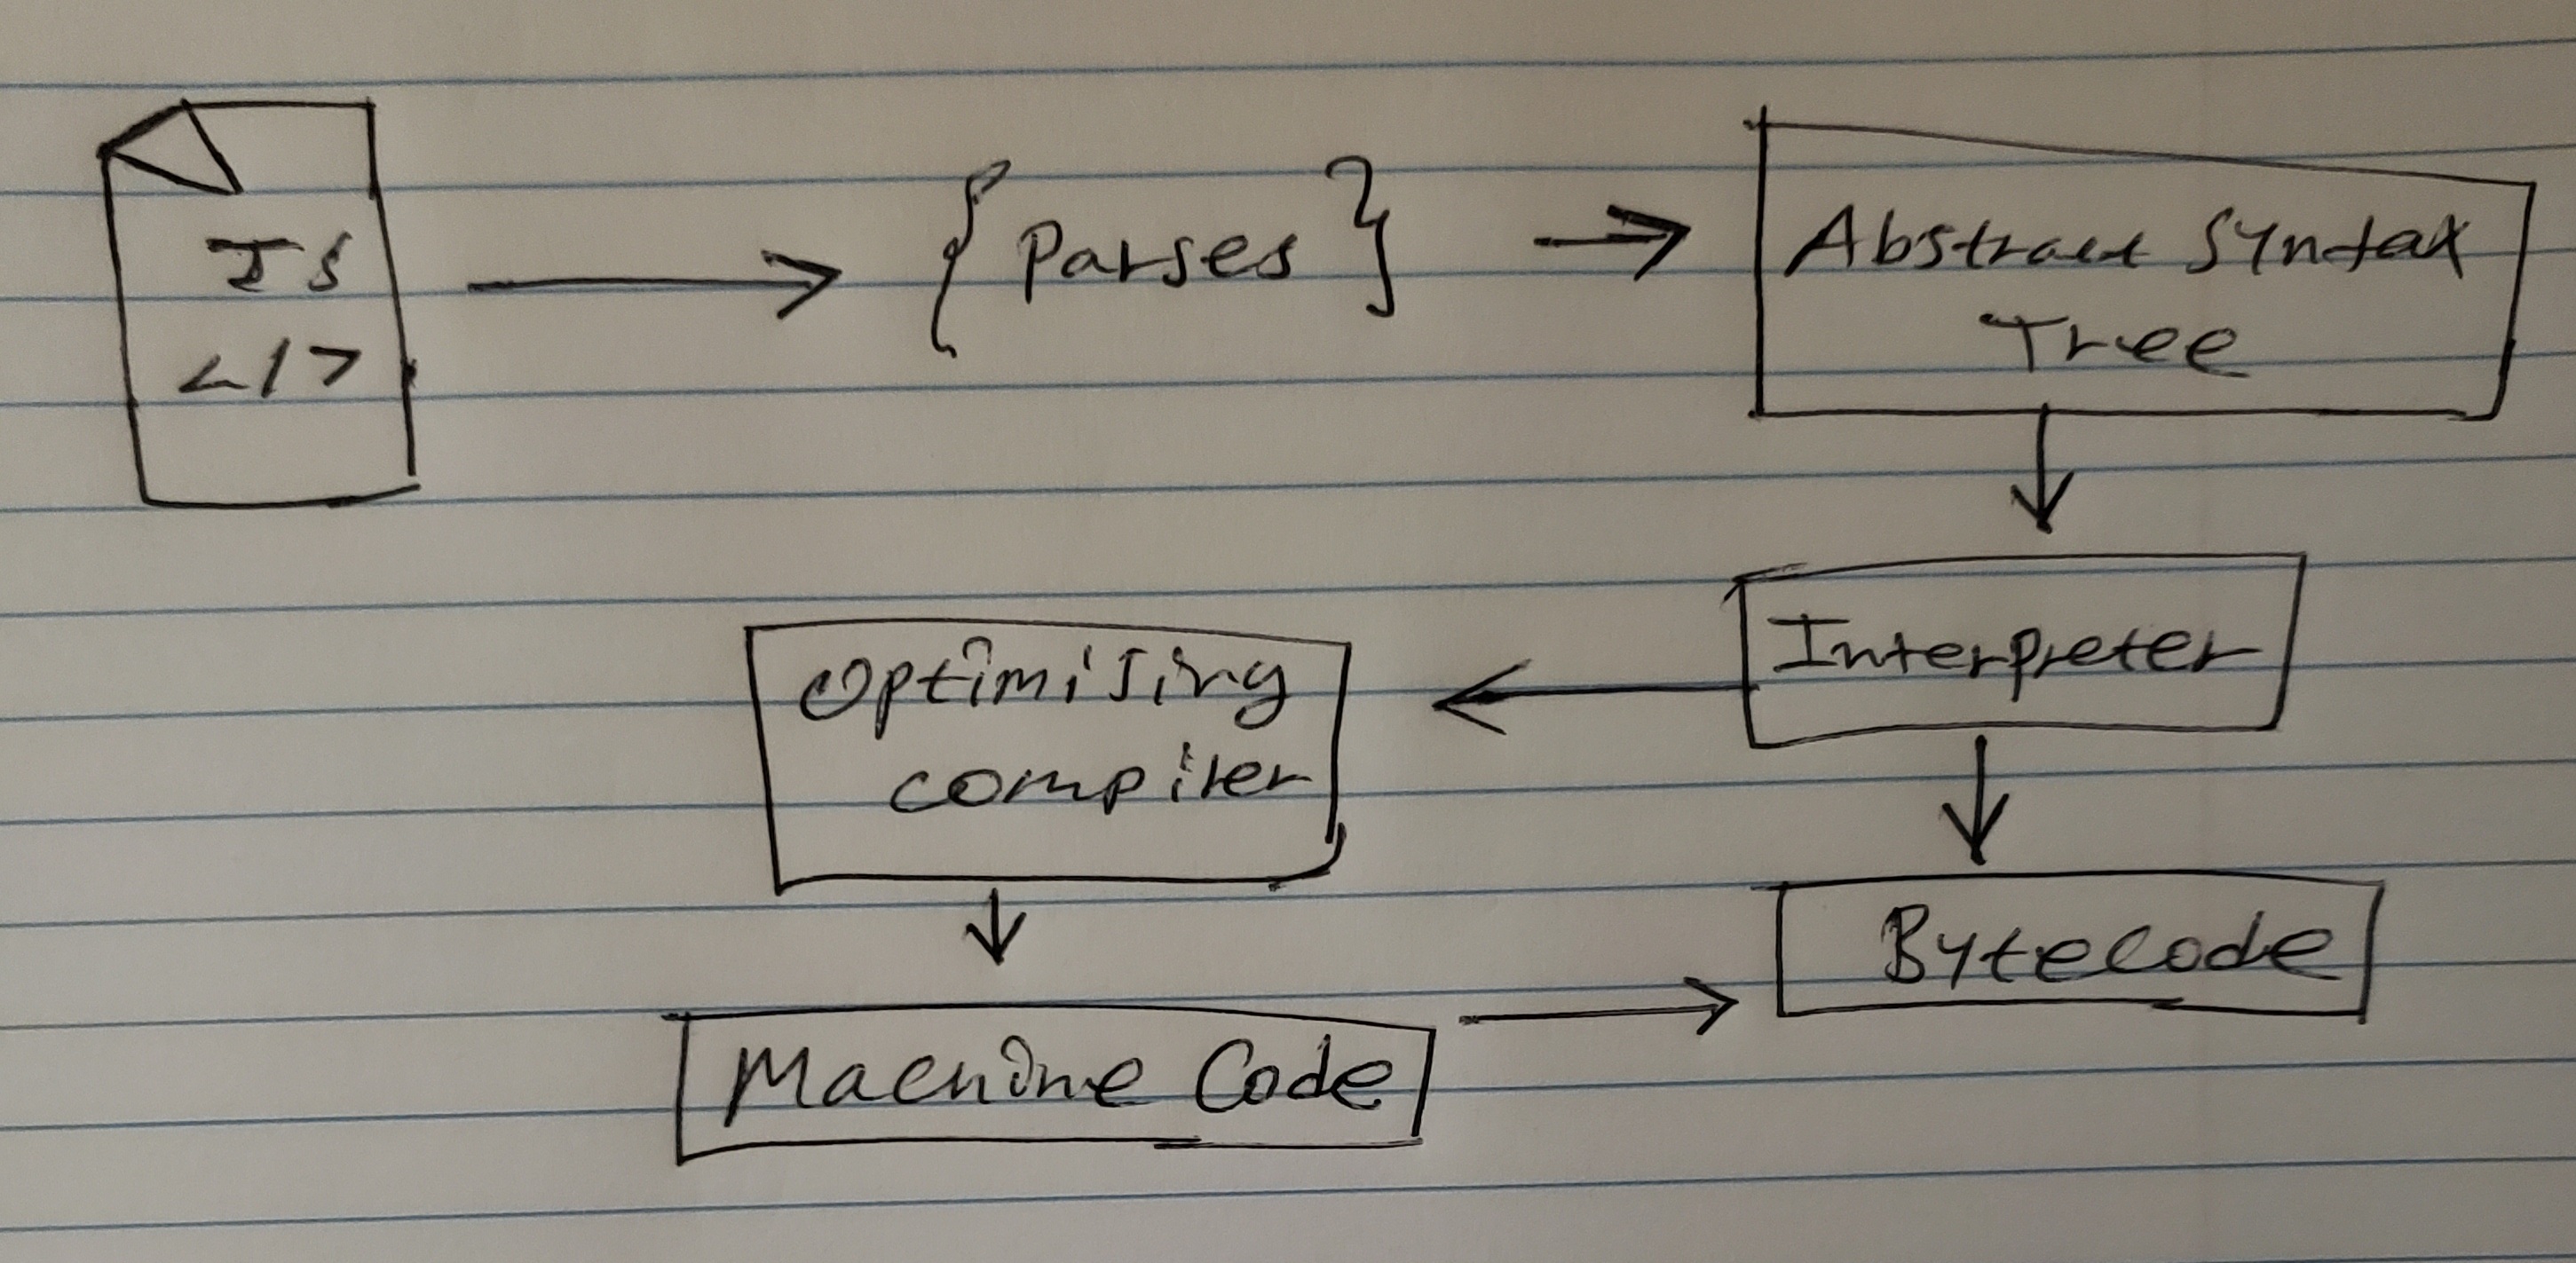 JS
</>
{ Parses }
Abstract Syntax
Tree
Interpreter
Optimising
compiler
Bytecode
Machine Code